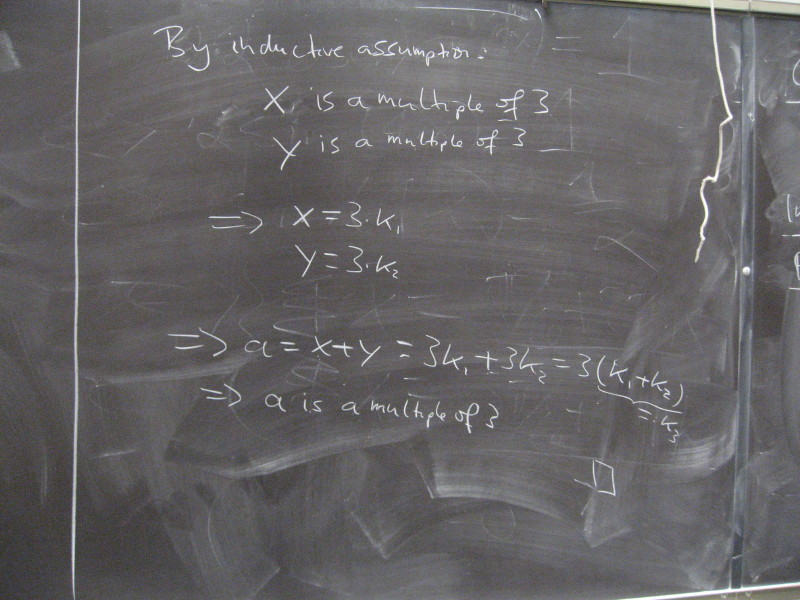 By inductive assumption:
X is a multiple of 3
Y is a multiple of 3
=> X = 3·k₁
Y = 3·k₂
=> a = x+y = 3k₁ + 3k₂ = 3(k₁+k₂)
=: k₃
=> a is a multiple of 3
□